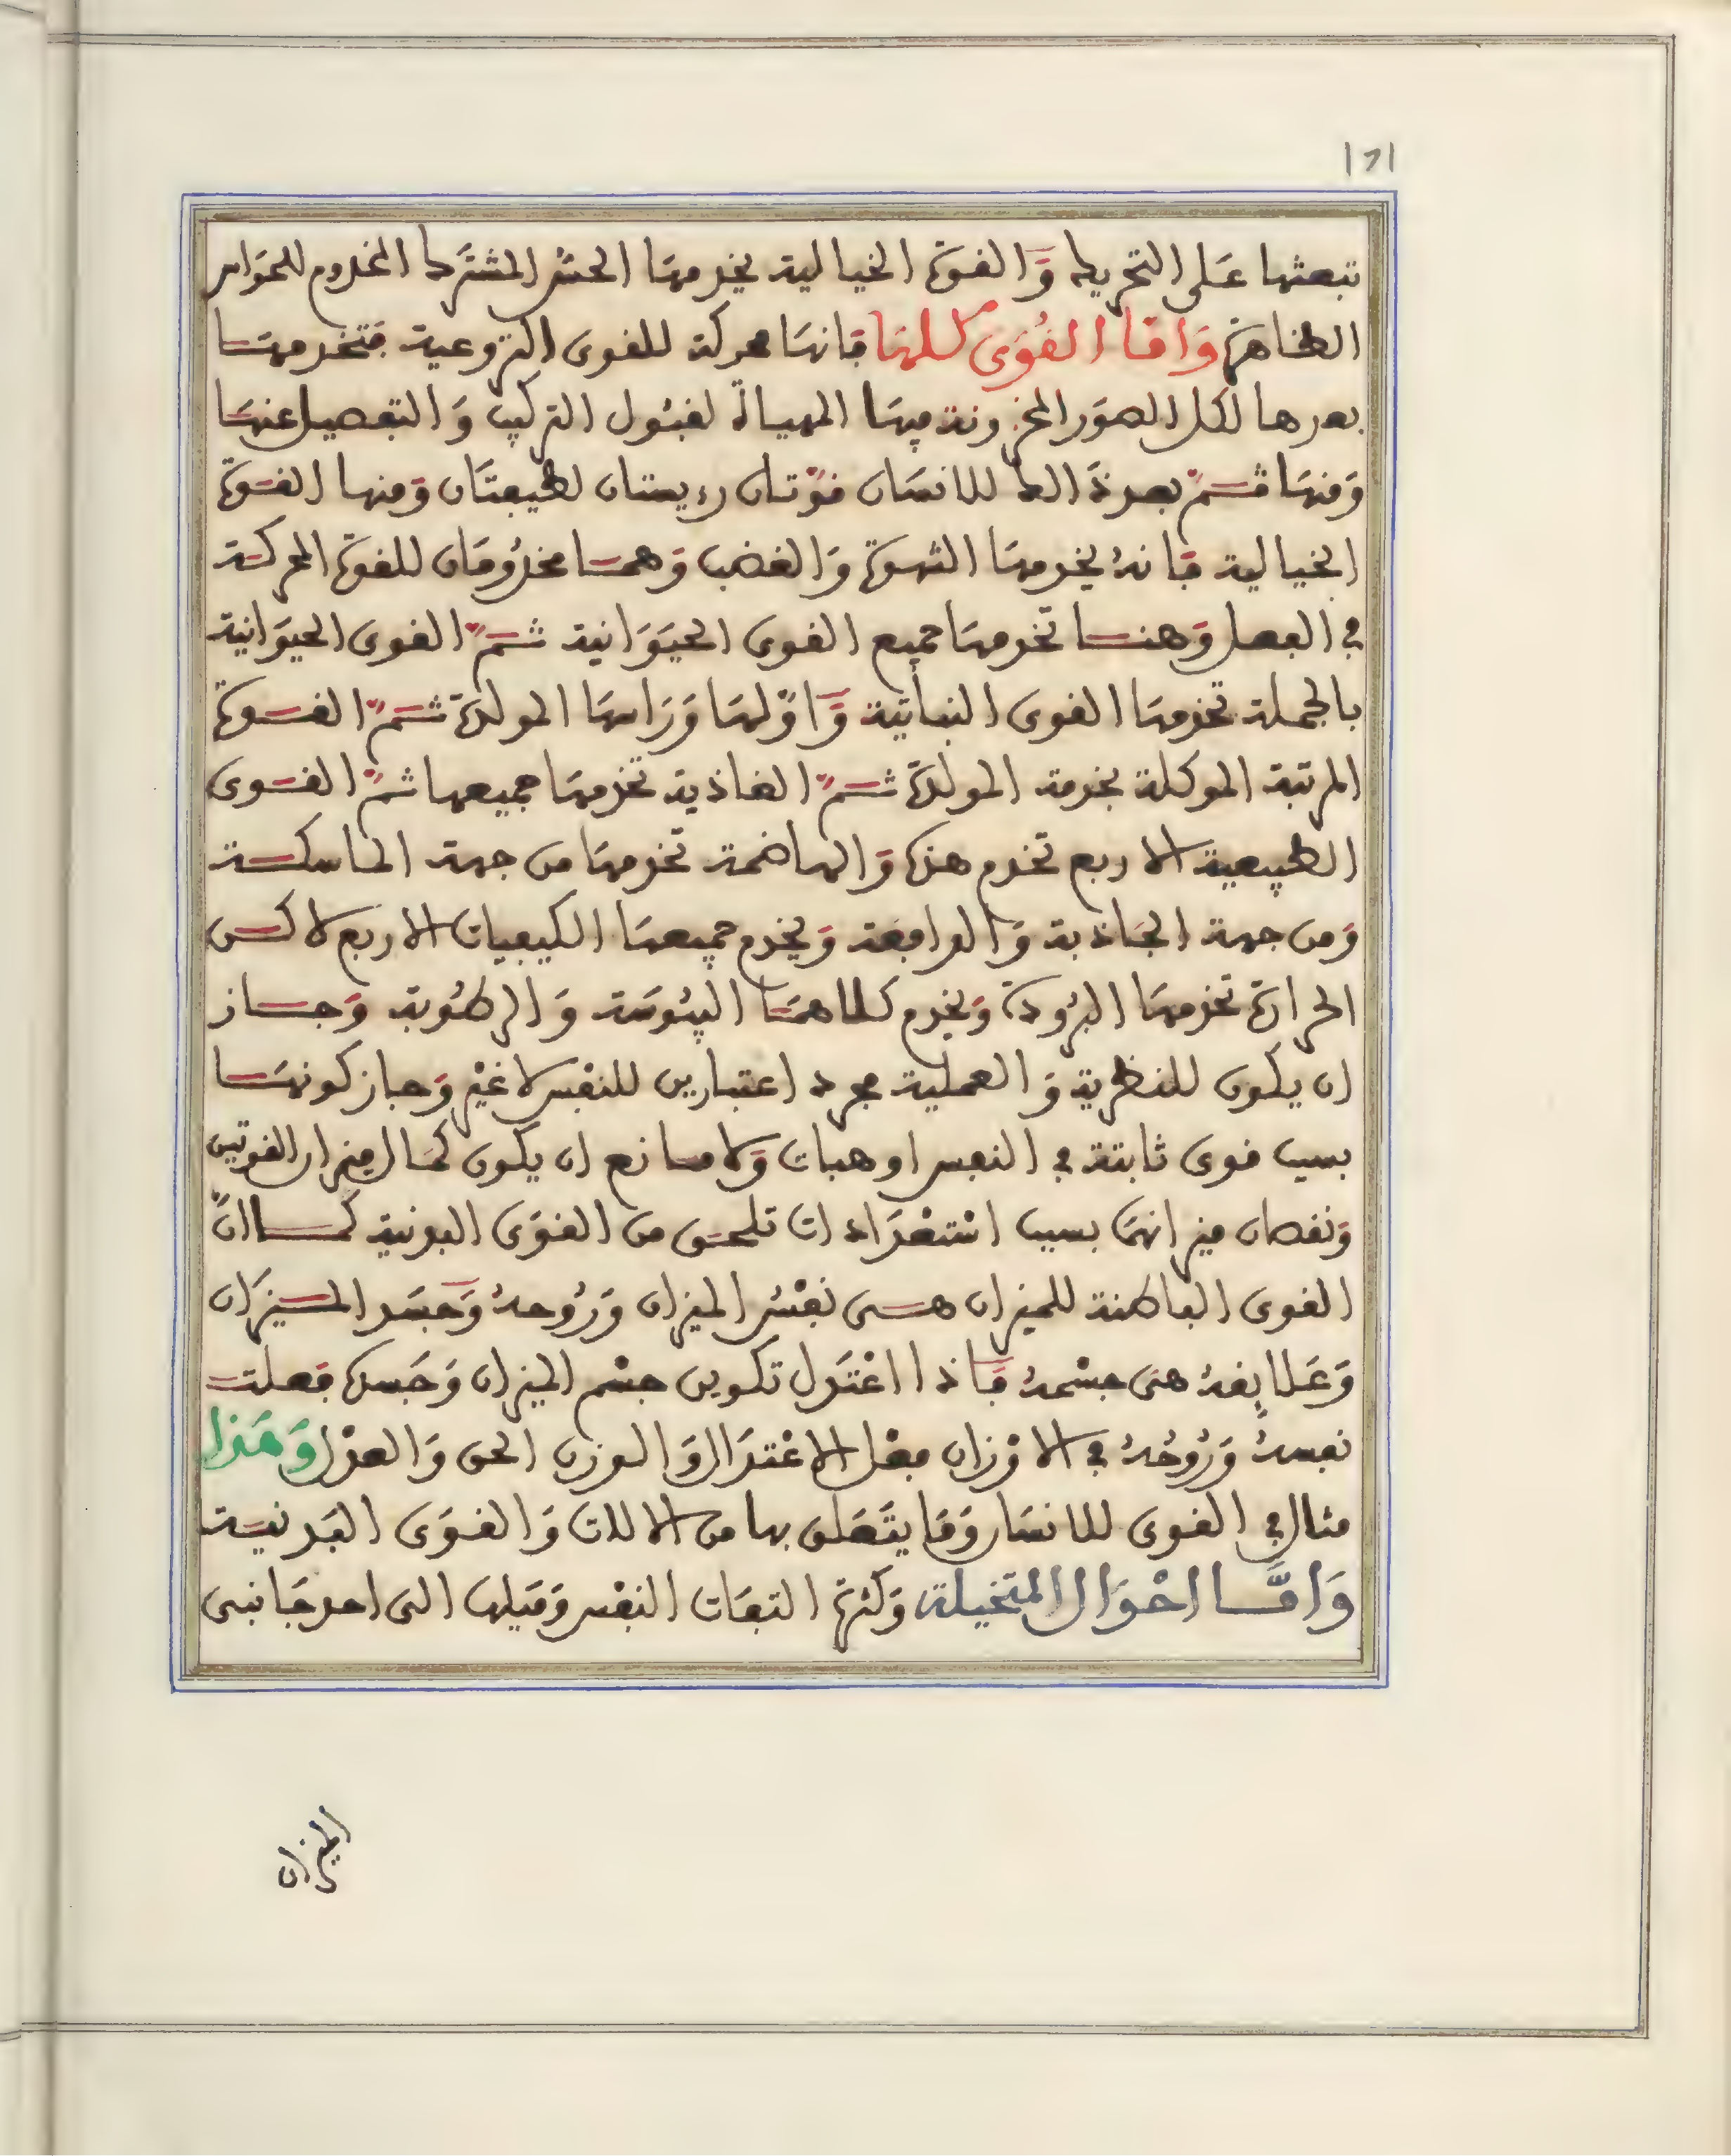 ١٦١
تبعثها عَلى التحريك وَالقوة الخيالية يخدمهَا الحسُّ المشتَرك المخدوم للحوَاس
الظاهرة وَامَّا القُوَى كلهَا فانهَا محركة للقوى النزوعية فتخدمهَا
بعدها لكل الصوَر المخزونة فيهَا المهيأة لقبُول التركيب وَالتفصيل عنهَا
وَمنهَا قسم بعد ذَا للانسَان قوَّتان رءيستان لطبيعتَان وَمنها القوَة
الخيالية فانهُ يخدمهَا الشهوة وَالغضب وَهمَا مخدُومَان للقوة المحركة
في الفعل وَهنا تخدمهَا جميع القوى الحيَوَانية ثمَّ القوى الحيوَانية
بالجملة تخدمهَا القوى النباتية وَاوَّلهَا وَرَاسهَا المولدة ثمَّ القوَة
المرتبة الموكلة بخدمة المولدة ثمَّ الغاذية تخدمهَا جميعها ثمَّ القوى
الطبيعية الاربع تخدم هذه وَالهاضمة تخدمهَا من جهة الماسكة
وَمن جهة الجَاذبة وَالدافعة وَيخدم جميعهَا الكيفيات الاربع لاكن
الحرارة تخدمهَا البرُودة وَيخدم كلاهمَا اليبُوسَة وَالرطُوبة وَجاز
ان يكون للنظرية وَالعملية مجرد اعتبارين للنفس لا غيْر وَجاز كونهَا
بسبب قوى ثابتة في النفس او هبات وَلا مانع ان يكون كمَال ميزان القوتين
وَنقصان ميزانهَا بسبب اسْتعْدَادات تلحق من القوَى البدنية كما انَّ
القوى الباطنة للميزان هى نفْسُ الميزان وَرُوحهُ وَجسَد الميزَان
وَعَلايقهُ هى جسْمهُ فَاذا اعْتدَل تكوين جسْم الميزان وَجَسده فعلت
نفسهُ وَرُوحُهُ في الاوْزان فعْل الاعْتدَال وَالوزن الحق وَالعدْل وَهَذا
مثال في القوى للانسَان وَمَا يتَعَلق بها من الالات وَالقوَى البَدنية
وَامَّا احْوَال المتخيلة وَكثرة التفَات النفْس وَميلها الى احد جَانبى
الميزان